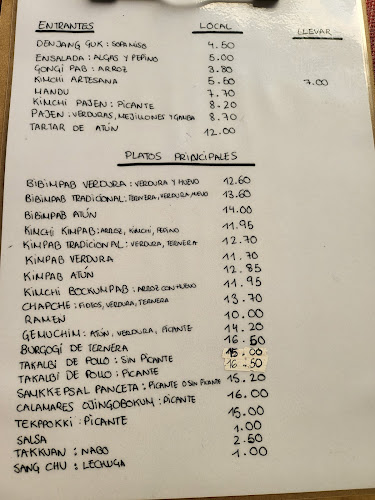 ENTRANTES LOCAL LLEVAR
DENJANG GUK : SOPA MISO 4.50
ENSALADA : ALGAS Y PEPINO 5.00
GONGI PAB : ARROZ 3.80
KIMCHI ARTESANA 5.50 7.00
MANDU 7.70
KIMCHI PAJEN : PICANTE 8.20
PAJEN : VERDURAS, MEJILLONES Y GAMBA 8.70
TARTAR DE ATÚN 12.00
PLATOS PRINCIPALES
BIBIMPAB VERDURA : VERDURA Y HUEVO 12.60
BIBIMPAB TRADICIONAL : TERNERA, VERDURA, HUEVO 13.60
BIBIMPAB ATÚN 14.00
KIMCHI KIMPAB : ARROZ, KIMCHI, PEPINO 11.95
KIMPAB TRADICIONAL : VERDURA, TERNERA 12.70
KIMPAB VERDURA 11.70
KIMPAB ATÚN 12.85
KIMCHI BOCKUMPAB : ARROZ CON HUEVO 11.95
CHAPCHE : FIDEOS, VERDURA, TERNERA 13.70
RAMEN 10.00
GEMUCHIM : ATÚN, VERDURA, PICANTE 14.20
BURGOGI DE TERNERA 16.50
TAKALBI DE POLLO : SIN PICANTE 15.00
TAKALBI DE POLLO : PICANTE 16.50
SAMKKEPSAL PANCETA : PICANTE O SIN PICANTE 15.20
CALAMARES OJINGOBOKUM : PICANTE 16.00
TEKPOKKI : PICANTE 15.00
SALSA 1.00
TAKKUAN : NABO 2.50
SANG CHU : LECHUGA 1.00